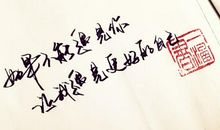 如果不能遇见你
让我遇见更好的自己